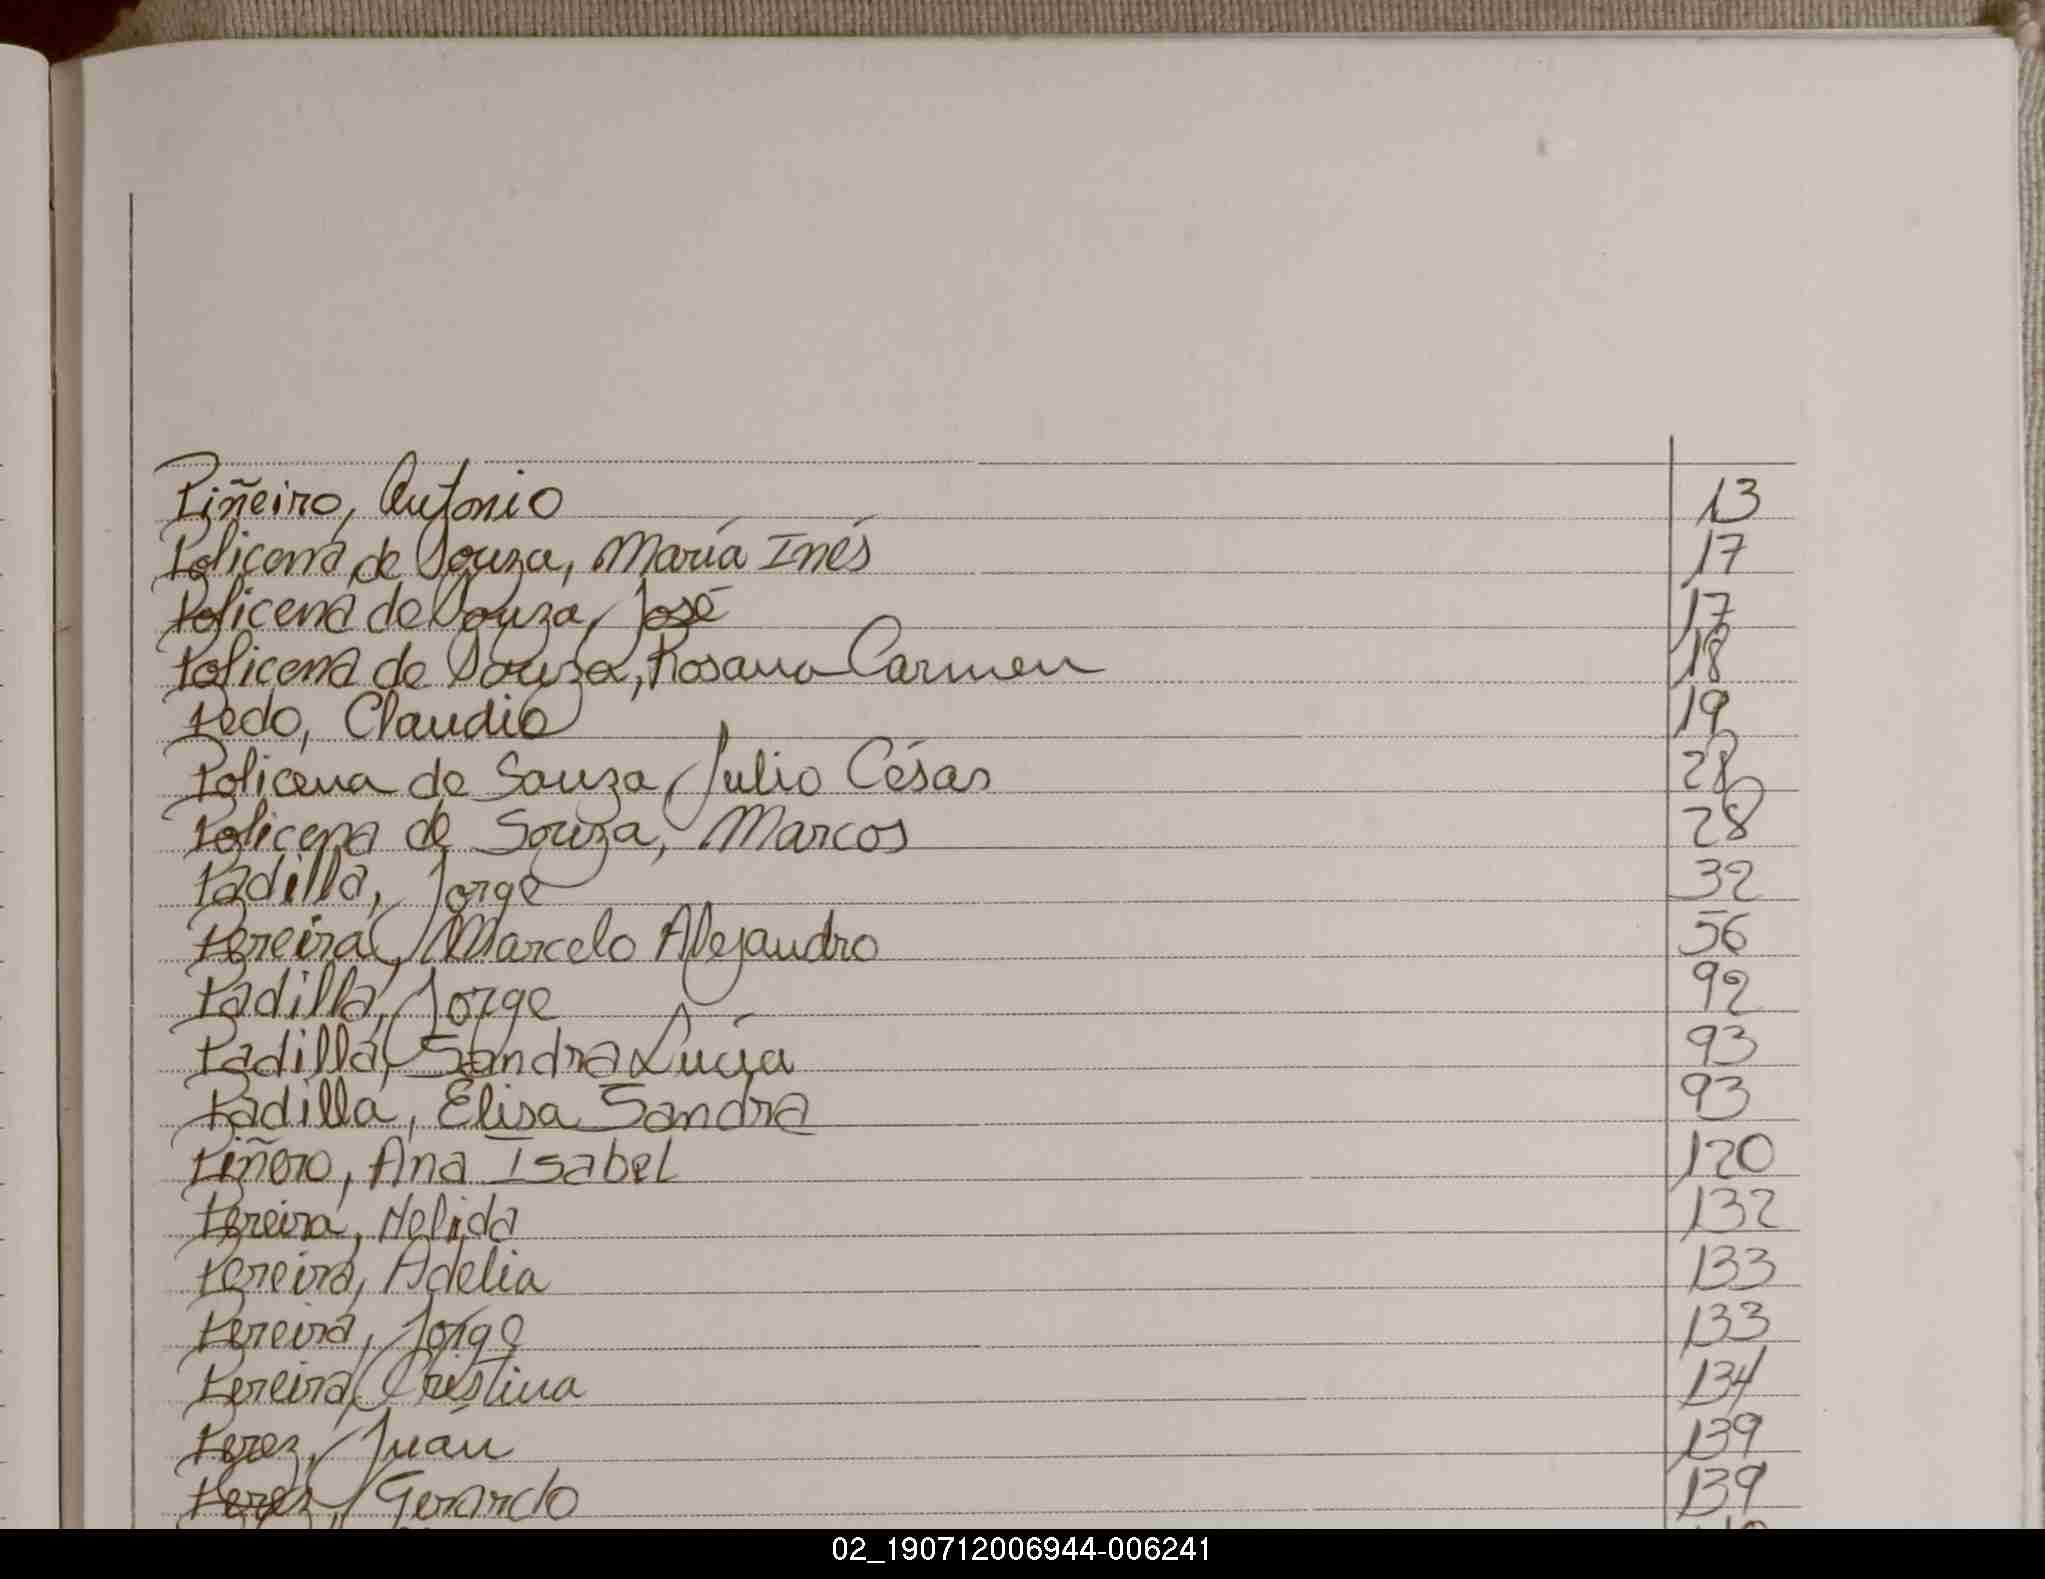 Piñeiro, Antonio 13
Policena de Souza, María Inés 17
Policena de Souza, José 17
Policena de Souza, Rosana Carmen 18
Pedo, Claudio 19
Policena de Souza, Julio César 28
Policena de Souza, Marcos 28
Padilla, Jorge 32
Pereira, Marcelo Alejandro 56
Padilla, Jorge 92
Padilla, Sandra Lucía 93
Padilla, Elisa Sandra 93
Piñero, Ana Isabel 120
Pereira, Nelida 132
Pereira, Adelia 133
Pereira, Jorge 133
Pereira, Cristina 134
Perez, Juan 139
Perez, Gerardo 139
02_190712006944-006241